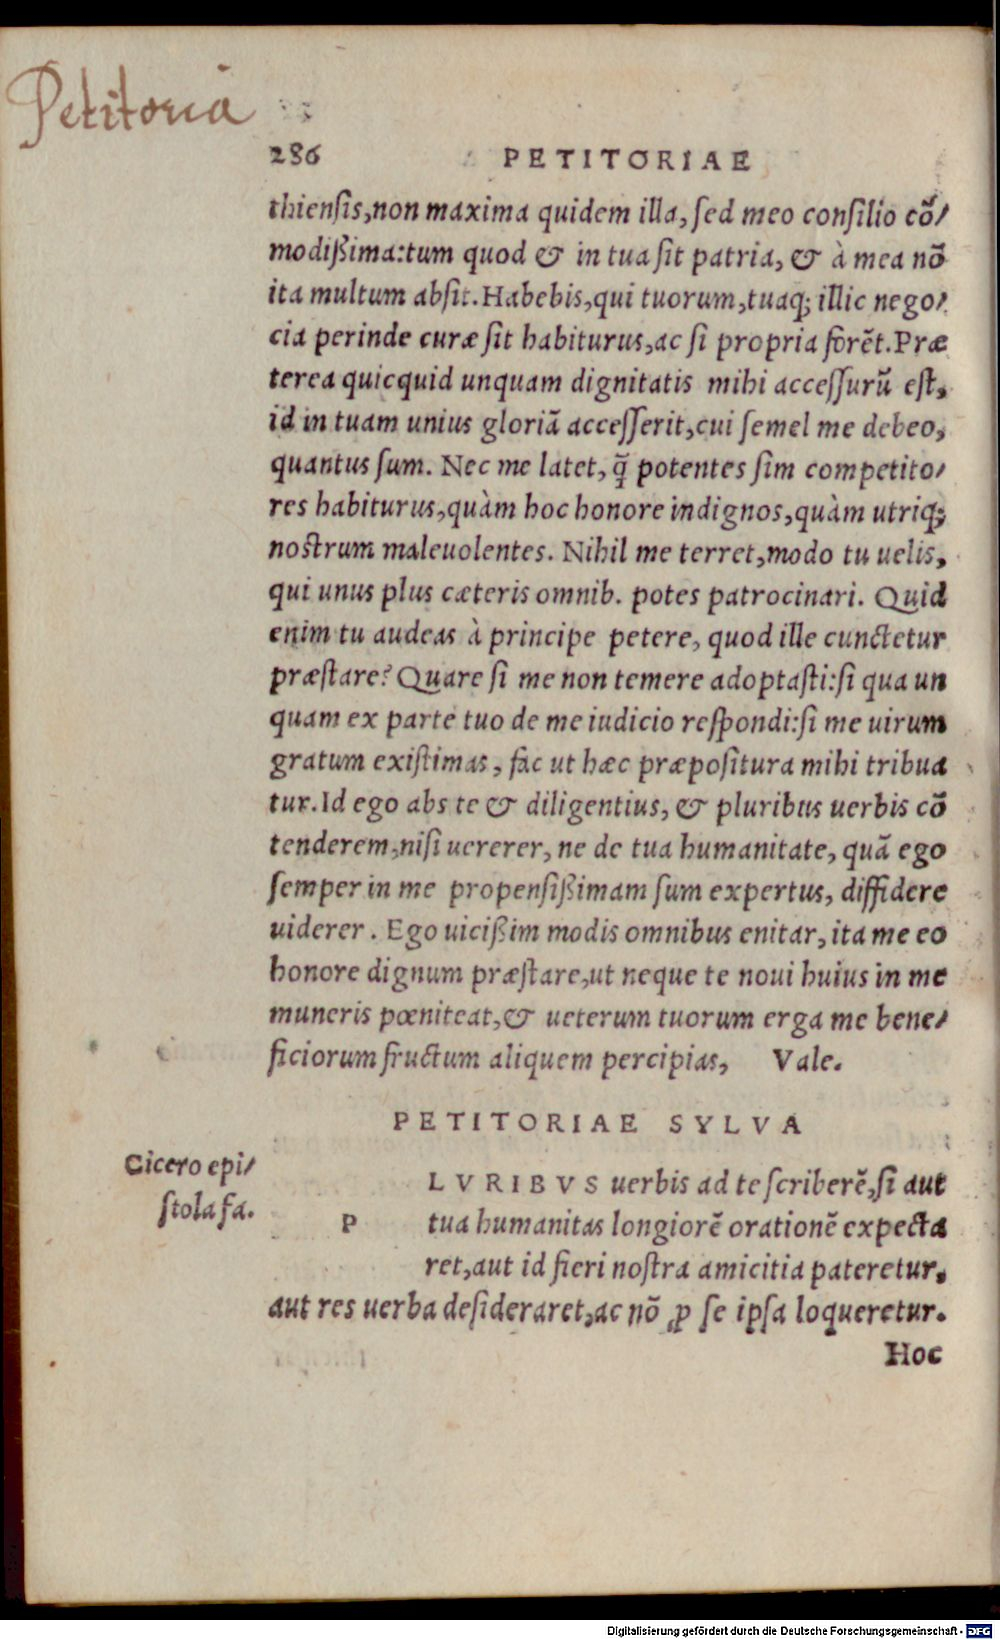 Petitoria
286 PETITORIAE
thiensis,non maxima quidem illa, sed meo consilio cõ/
modißima:tum quod & in tua sit patria, & à mea nõ
ita multum absit. Habebis,qui tuorum,tuaq; illic nego/
cia perinde curæ sit habiturus,ac si propria forẽt.Præ
terea quicquid unquam dignitatis mihi accessurũ est,
id in tuam unius gloriã accesserit,cui semel me debeo,
quantus sum. Nec me latet, q̃ potentes sim competito/
res habiturus,quàm hoc honore indignos,quàm utriq;
nostrum maleuolentes. Nihil me terret,modo tu uelis,
qui unus plus cæteris omnib. potes patrocinari. Quid
enim tu audeas à principe petere, quod ille cunctetur
præstare? Quare si me non temere adoptasti:si qua un
quam ex parte tuo de me iudicio respondi:si me uirum
gratum existimas, fac ut hæc præpositura mihi tribua
tur.Id ego abs te & diligentius, & pluribus uerbis cõ
tenderem,nisi uererer, ne de tua humanitate, quã ego
semper in me propensißimam sum expertus, diffidere
uiderer. Ego uicißim modis omnibus enitar, ita me eo
honore dignum præstare,ut neque te noui huius in me
muneris pœniteat,& ueterum tuorum erga me bene/
ficiorum fructum aliquem percipias, Vale.
PETITORIAE SYLVA
Cicero epi/
stola fa.
P
LVRIBVS uerbis ad te scriberẽ,si aut
tua humanitas longiorẽ orationẽ expecta
ret,aut id fieri nostra amicitia pateretur,
aut res uerba desideraret,ac nõ ꝑ se ipsa loqueretur.
Hoc
Digitalisierung gefördert durch die Deutsche Forschungsgemeinschaft - DFG